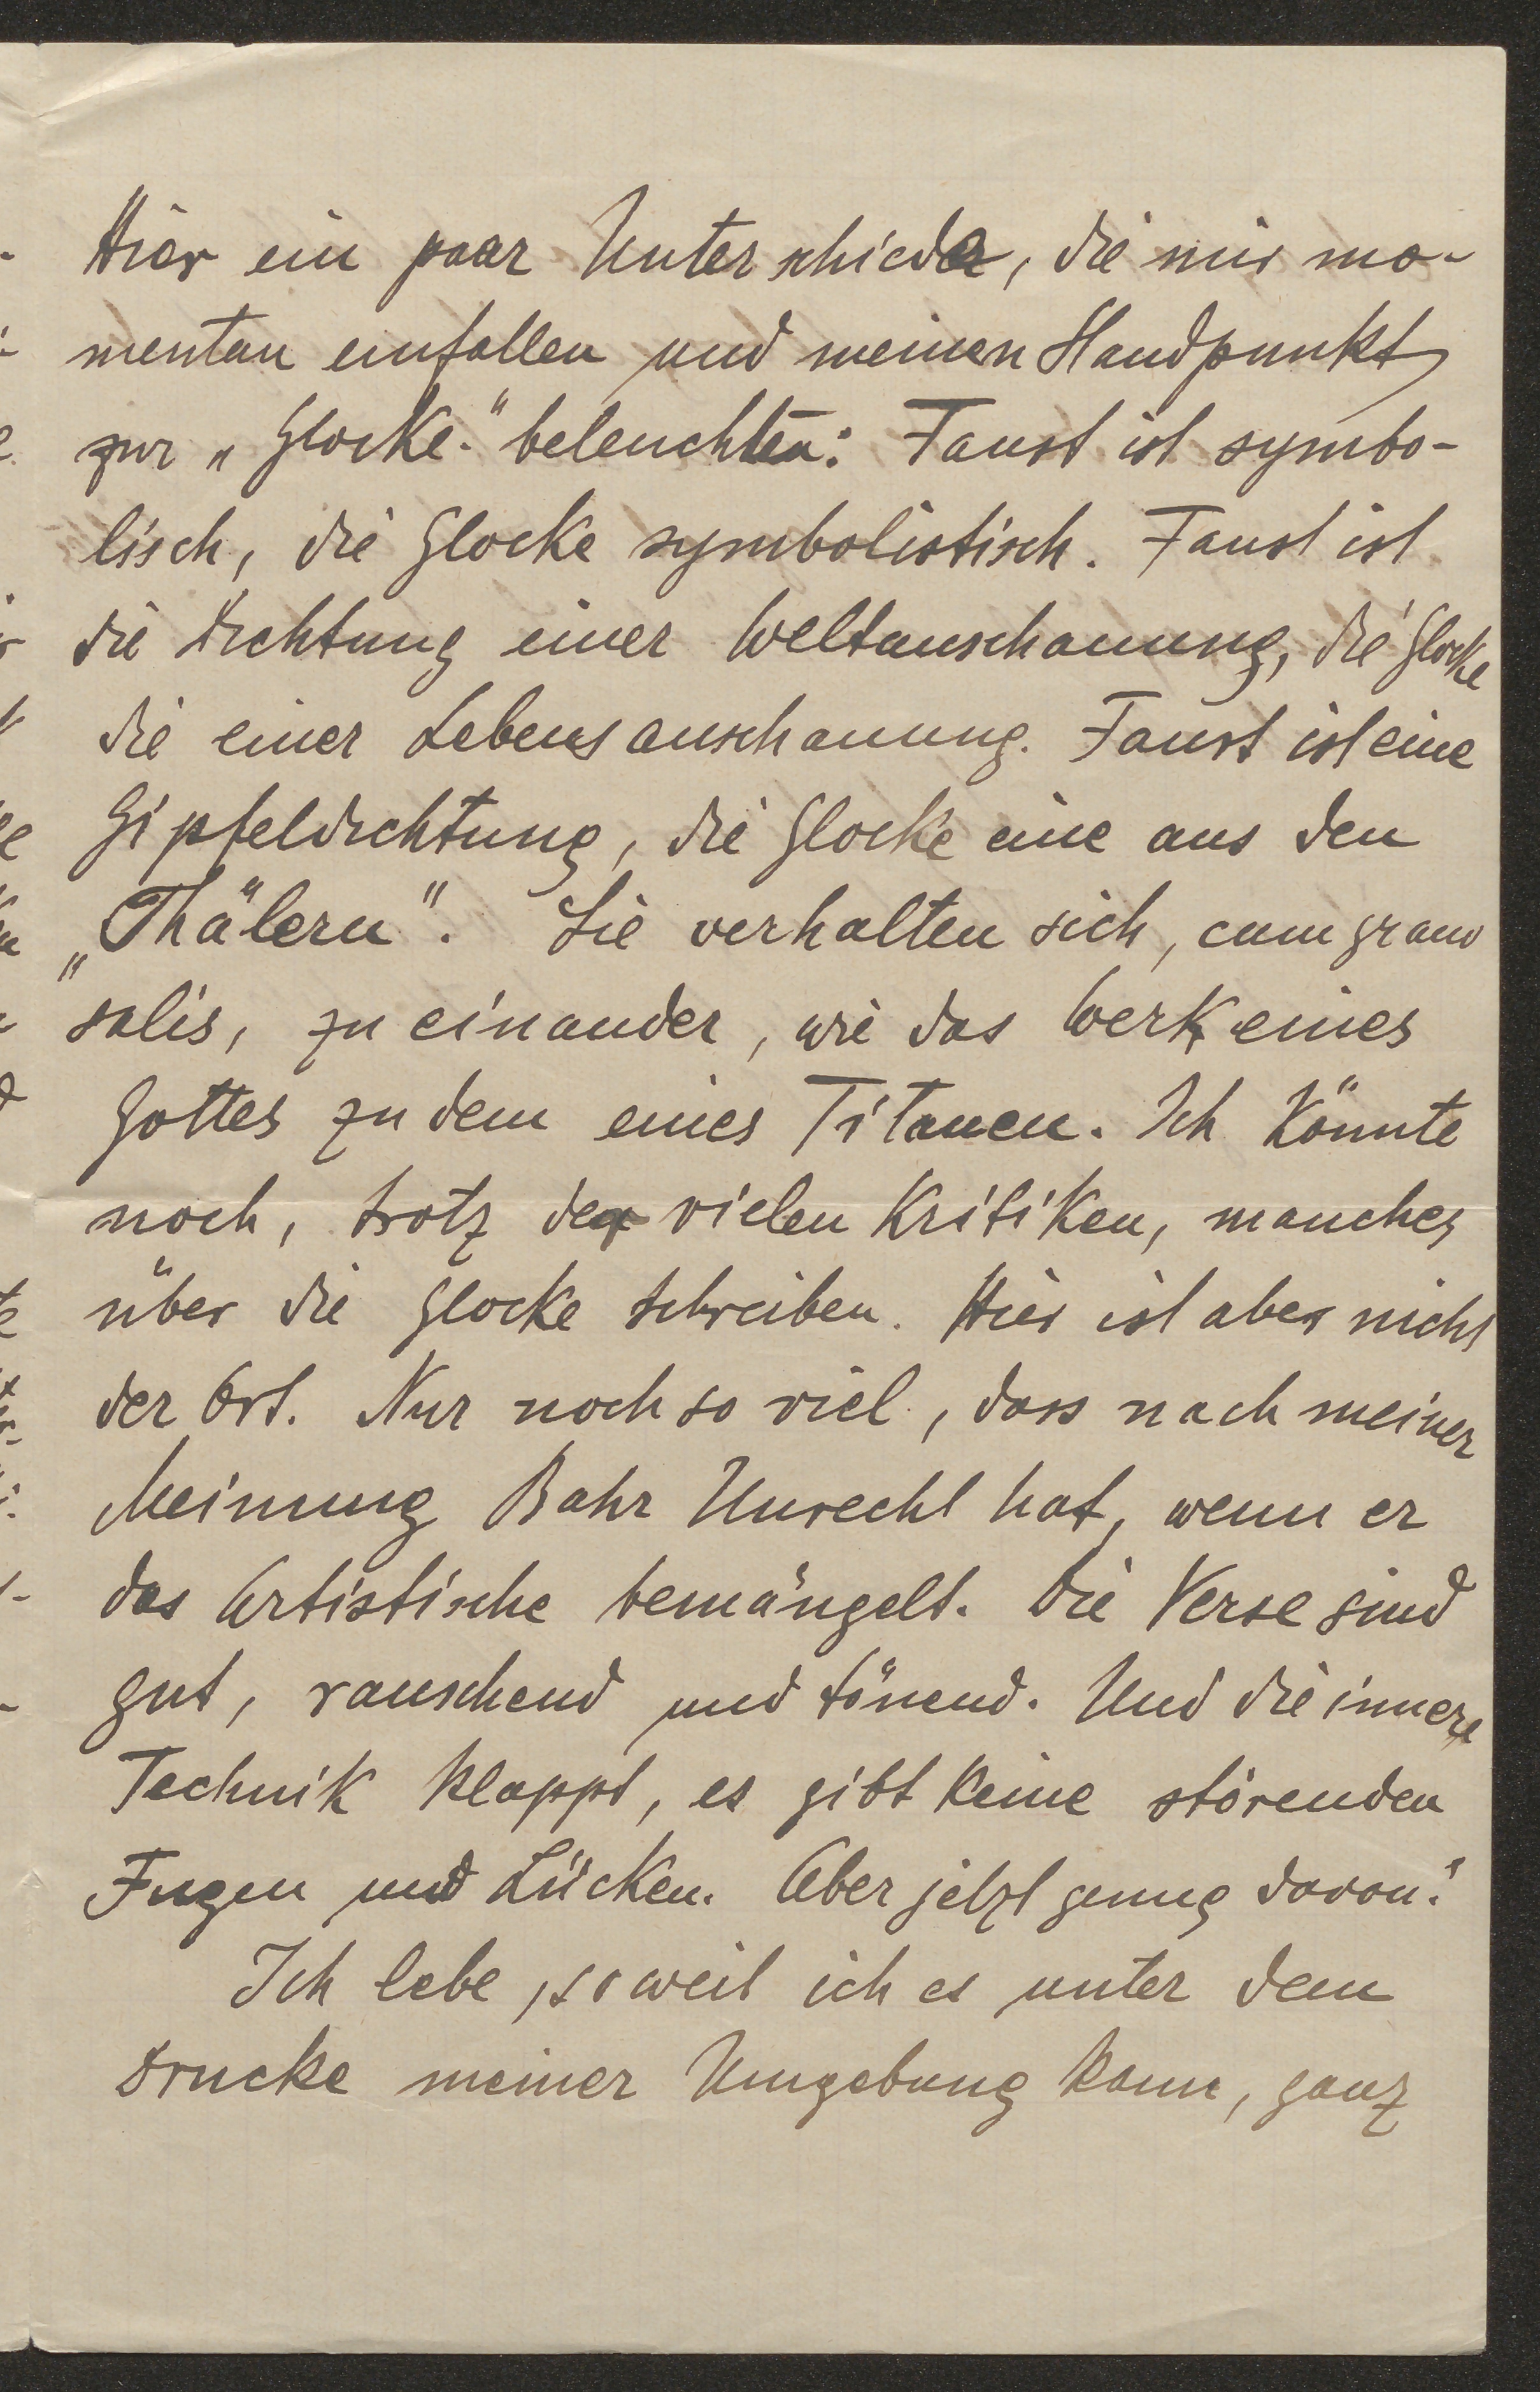 Hier ein paar Unterschiede, die mir mo-
mentan einfallen und meinen Standpunkt
zur „Glocke" beleuchten: Faust ist symbo-
lisch, die Glocke symbolistisch. Faust ist
die Dichtung einer Weltanschauung, die Glocke
die einer Lebensanschauung. Faust ist eine
Gipfeldichtung, die Glocke eine aus den
„Thälern". Sie verhalten sich, cum grano
salis, zu einander, wie das Werk eines
Gottes zu dem eines Titanen. Ich könnte
noch, trotz der vielen Kritiken, manches
über die Glocke schreiben. Hier ist aber nicht
der Ort. Nur noch so viel, dass nach meiner
Meinung Bahr Unrecht hat, wenn er
das Artistische bemängelt. Die Verse sind
gut, rauschend und tönend. Und die innere
Technik klappt, es gibt keine störenden
Fugen und Lücken. Aber jetzt genug davon!
Ich lebe, soweit ich es unter dem
Drucke meiner Umgebung kann, ganz